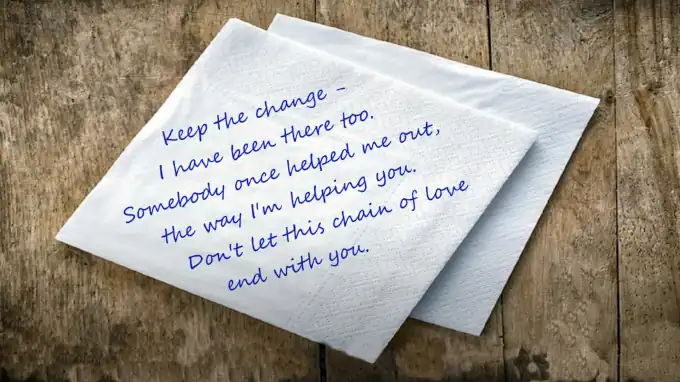 Keep the change -
I have been there too.
Somebody once helped me out,
the way I'm helping you.
Don't let this chain of love
end with you.